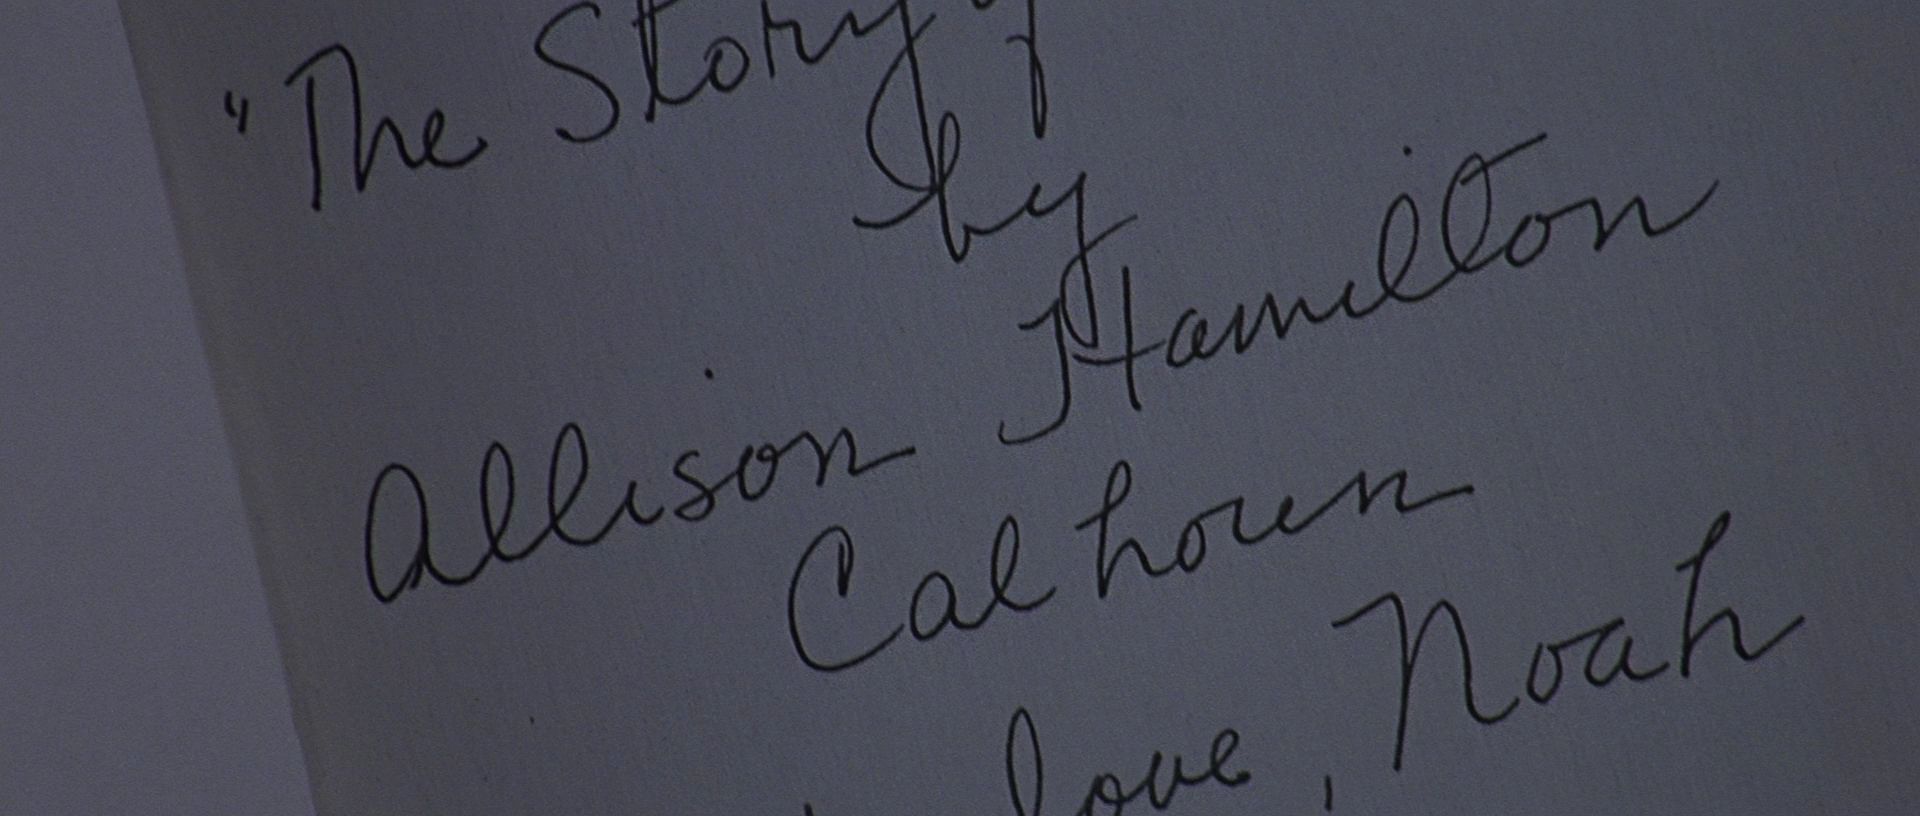 "The Story
by
Allison Hamilton
Calhoun
love, Noah